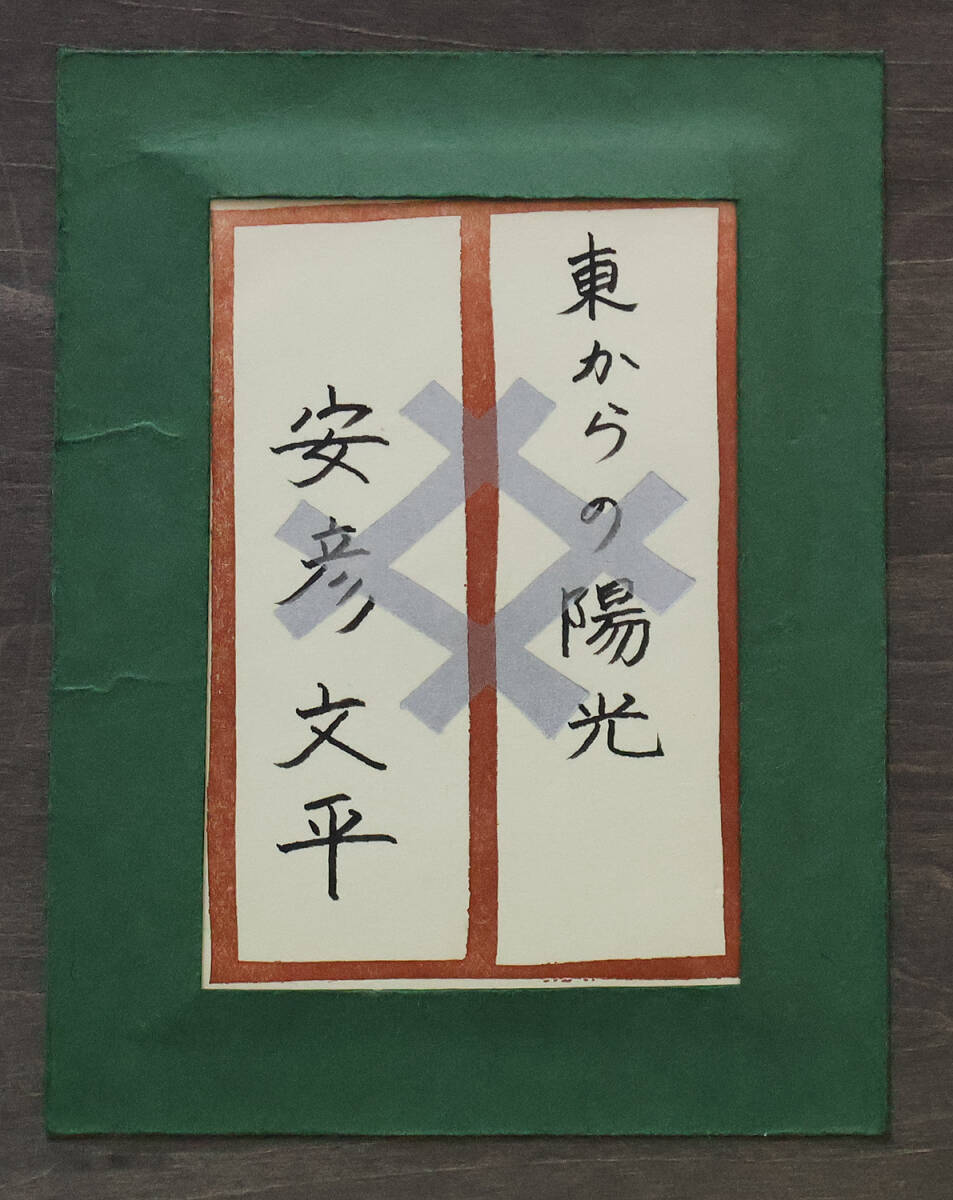 東からの陽光
安彦文平